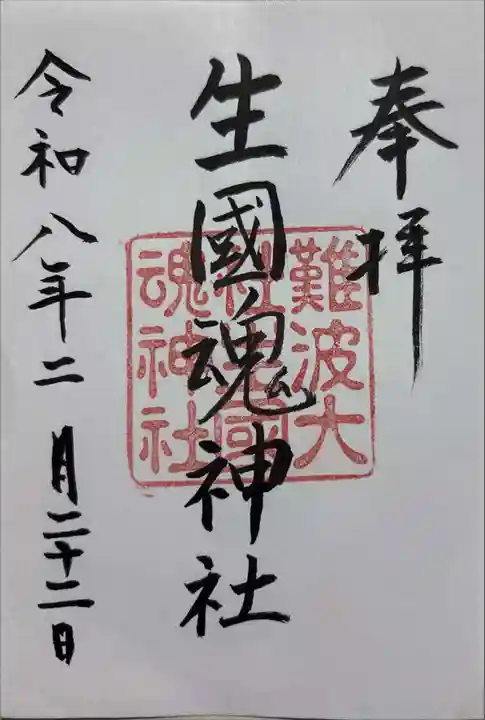 奉拝
生國魂神社
難波大
社生國
魂神社
令和八年二月二十二日